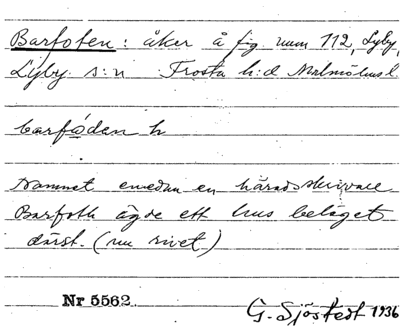 Barfoten: åker å fig num 112, Lyby,
Lyby s:n Frosta h:d Malmöhus l.
barfødan h
namnet emedan en häradsskrivare
Barfoth ägde ett hus beläget
därst. (nu rivet)
Nr 5562
G. Sjöstedt 1936